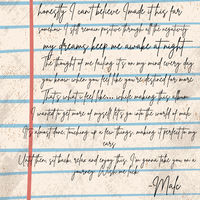 honestly I can't believe I made it this far
somehow I still remain positive through all the negativity
my dreams keep me awake at night
The thought of me failing it's on my mind every day
you know when you feel like you redefined far more
That's what i feel like... while making this album
I wanted to get more of myself let's go into the world of male
It's almost time, touching up a few things, making it perfect to my
ears
Until then sit back, relax and enjoy this. I'm gonna take you on a
journey. Wish me luck
-Male